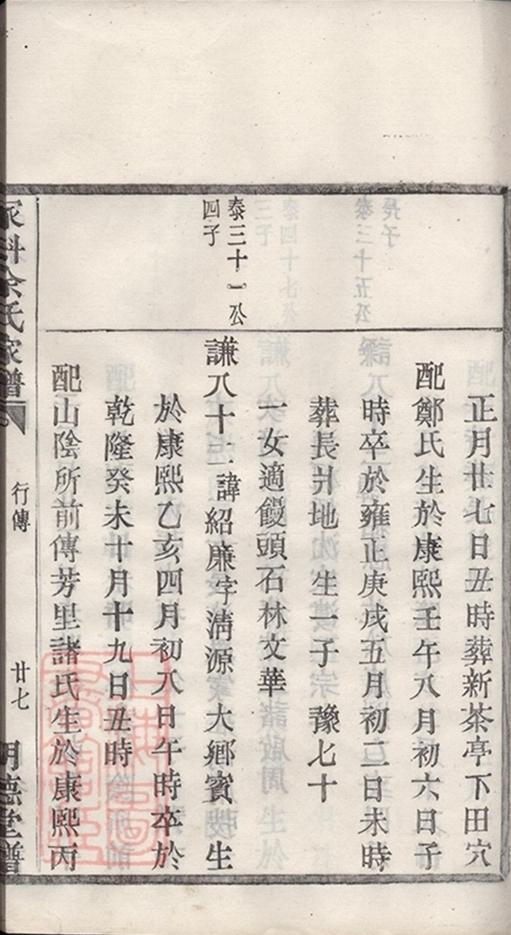 正月廿七日丑時葬新茶亭下田穴
配鄭氏生於康熙壬午八月初六日子
時卒於雍正庚戌五月初二日未時
葬長爿地 生一子 豫七十
一女適饅頭石林文華
泰三十一公
四子
謙八十二 諱紹廉字淸源 大鄉賓 生
於康熙乙亥四月初八日午時卒於
乾隆癸未十月十九日丑時
配山陰所前傳芳里諸氏生於康熙丙
余氏家譜
行傳
廿七
明德堂譜